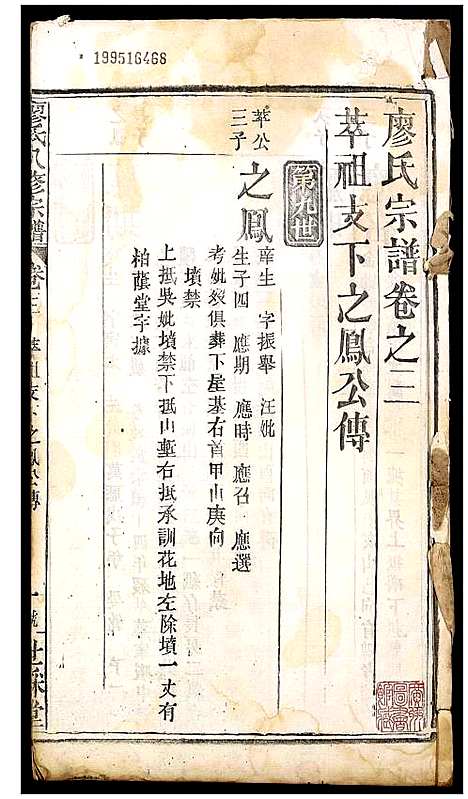 199516468
廖氏宗譜卷之三
萃祖支下之鳳公傳
第九世
萃公三子
之鳳
庠生 字振舉 汪妣
生子四 應期 應時 應召 應選
考妣歿俱葬下屋基右首甲山庚向
墳禁
上抵吳妣墳禁下抵山塹右抵承訓花地左除墳一丈有
柏蔭堂字據
廖氏八修宗譜
卷三 萃祖支下之鳳公傳
一號 世綵堂